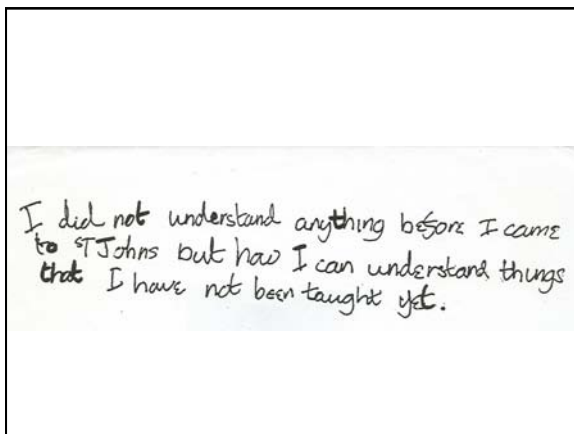 I did not understand anything before I came
to ST Johns but how I can understand things
that I have not been taught yet.